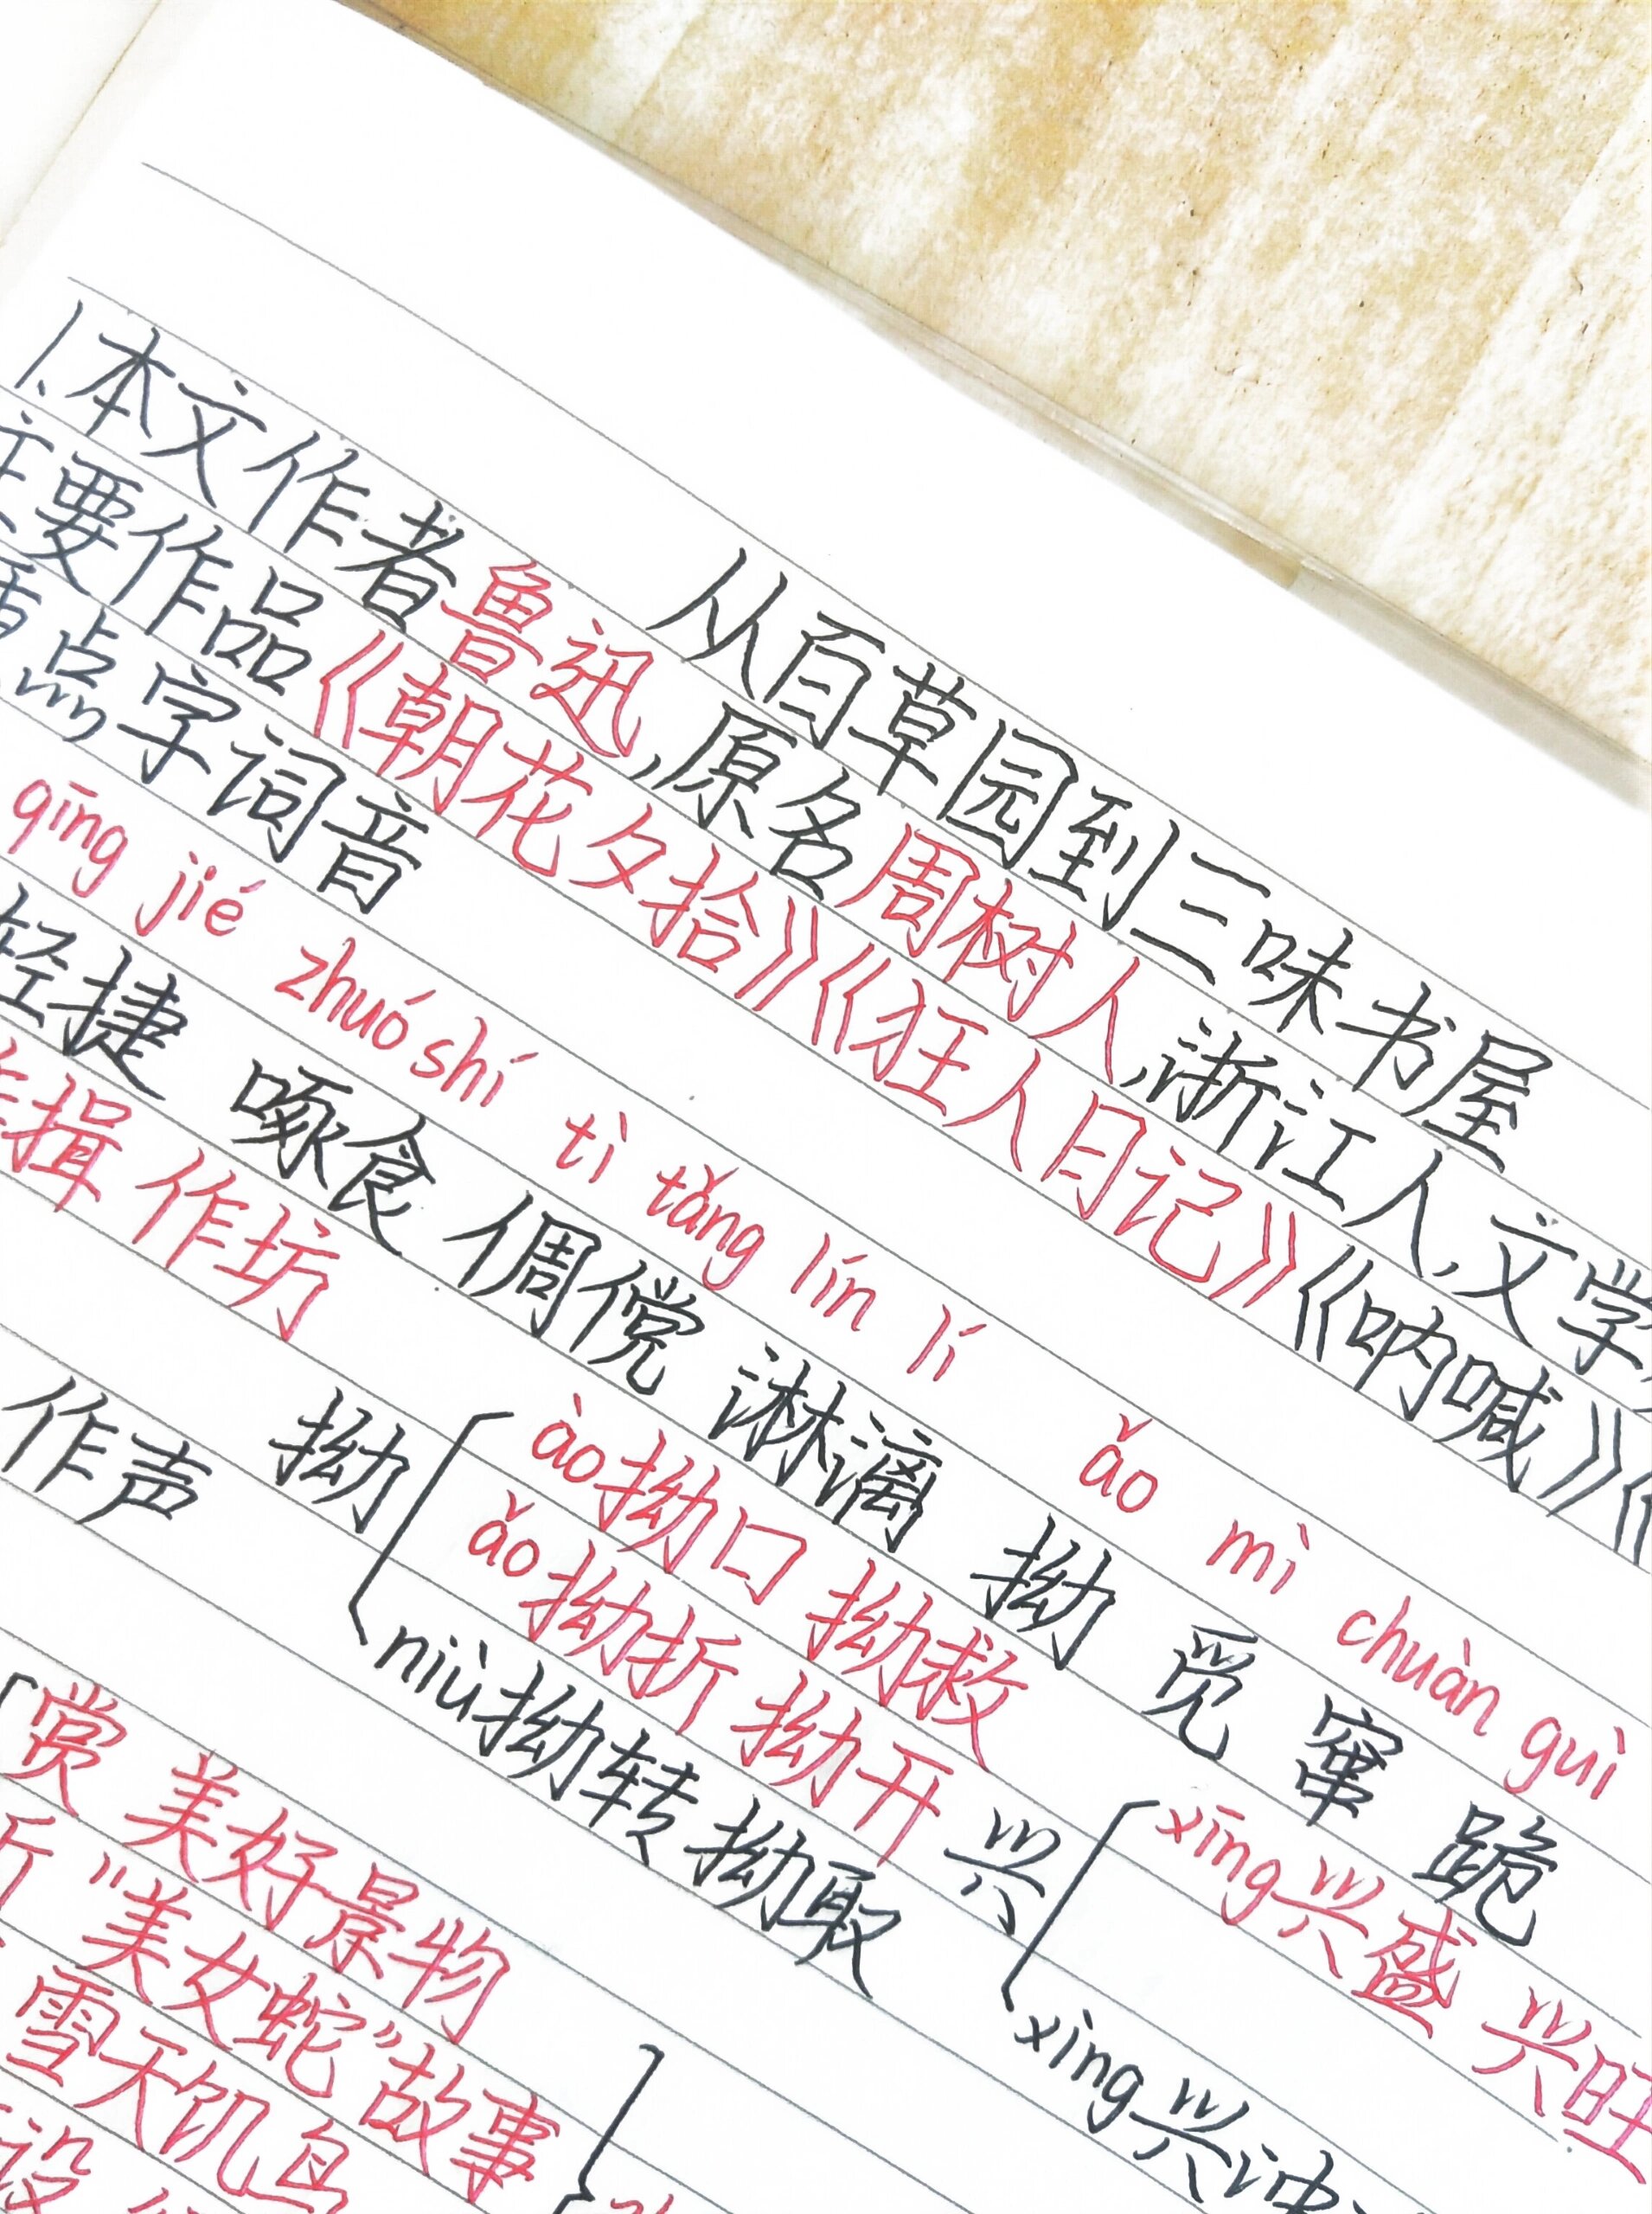 从百草园到三味书屋
1.本文作者鲁迅,原名周树人,浙江人,文学
主要作品《朝花夕拾》《狂人日记》《呐喊》《
重点字词音
qīng jié zhuó shí tì tǎng lín lí ǎo mì chuàn guì
轻捷 啄食 倜傥 淋漓 拗 觅 窜 跪
揖 作坊
作声 拗 ào拗口 拗救
ǎo拗折 拗开
niù拗转 拗取
兴 xīng兴盛 兴旺
xìng兴冲
赏 美好景物
"美女蛇"故事
雪天
设